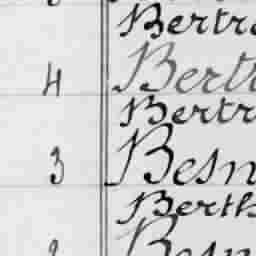 Bertr
4 Bertr
Bertr
3 Besn
Berth
Besn